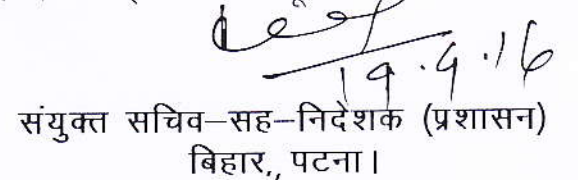 19.9.16
संयुक्त सचिव–सह–निदेशक (प्रशासन)
बिहार,, पटना।